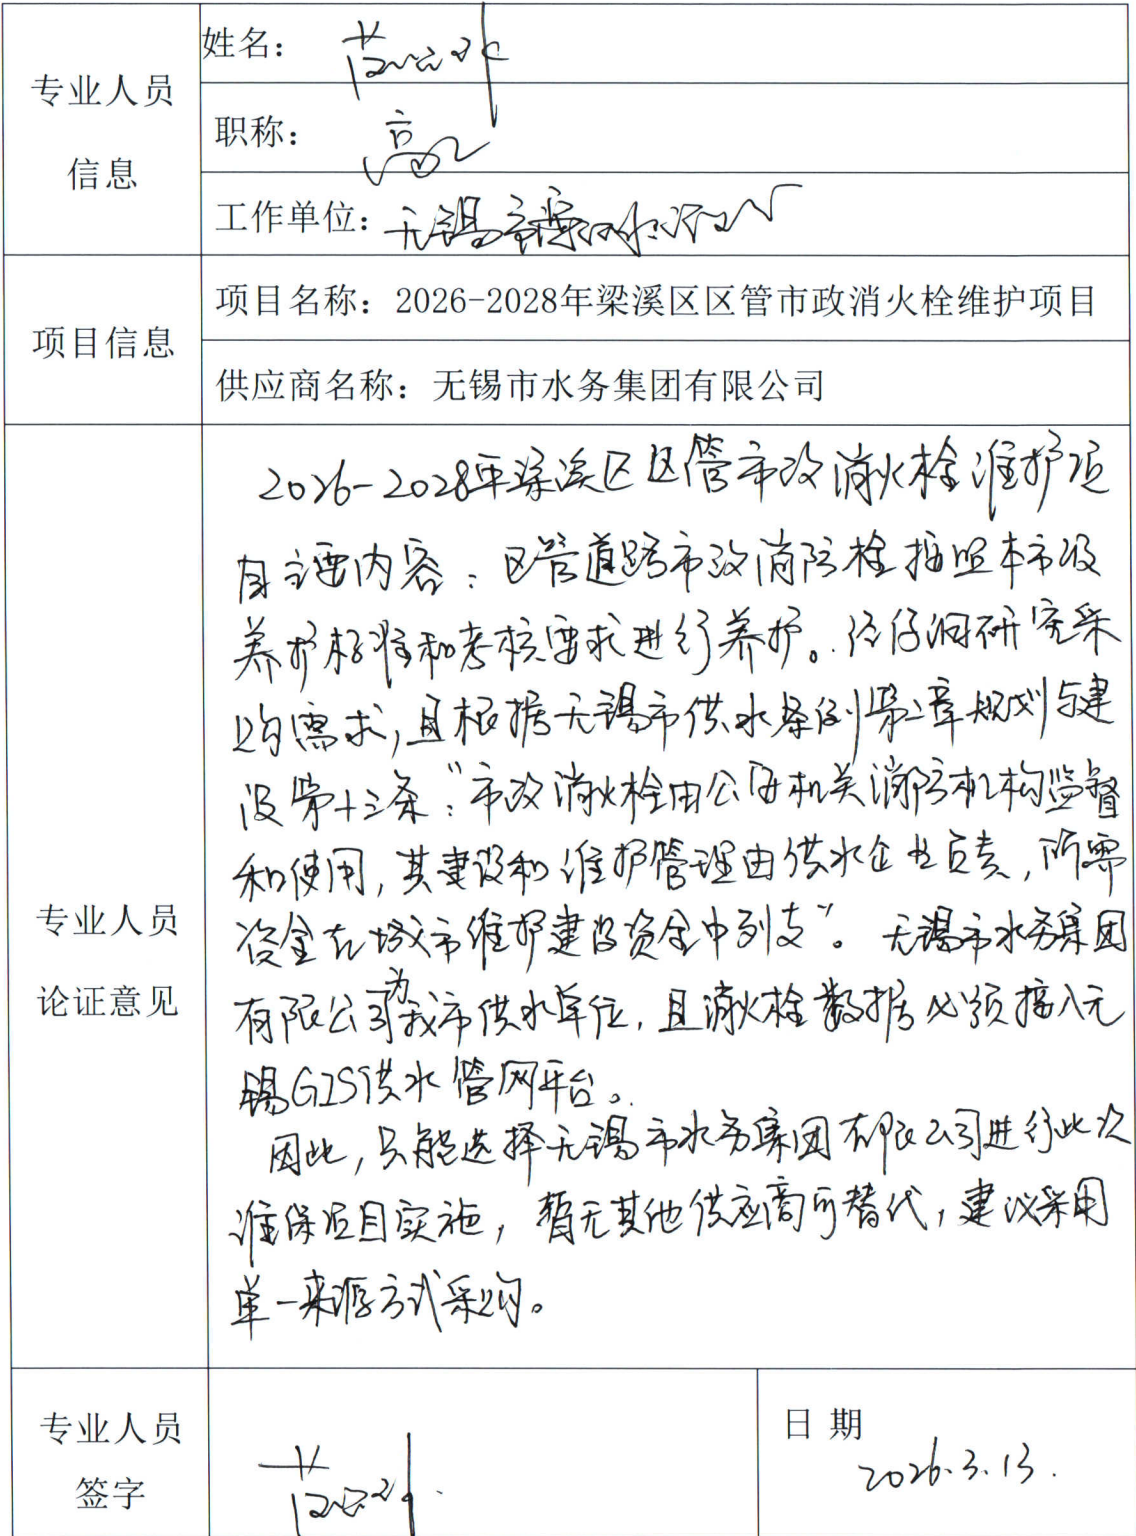 专业人员
信息
姓名：
职称：高工
工作单位：无锡市
项目信息
项目名称：2026-2028年梁溪区区管市政消火栓维护项目
供应商名称：无锡市水务集团有限公司
专业人员
论证意见
2026-2028年梁溪区区管市政消火栓维护项
目主要内容：区管道路市政消防栓按照本市级
养护标准和考核要求进行养护。经仔细研究采
购需求，且根据无锡市供水条例第二章规划与建
设第十三条：“市政消火栓由公安机关消防机构监督
和使用，其建设和维护管理由供水企业负责，所需
资金在城市维护建设资金中列支”。无锡市水务集团
有限公司为我市供水单位，且消火栓数据必须接入无
锡GIS供水管网平台。
因此，只能选择无锡市水务集团有限公司进行此次
维保项目实施，暂无其他供应商可替代，建议采用
单一来源方式采购。
专业人员
签字
日期
2026.3.13.